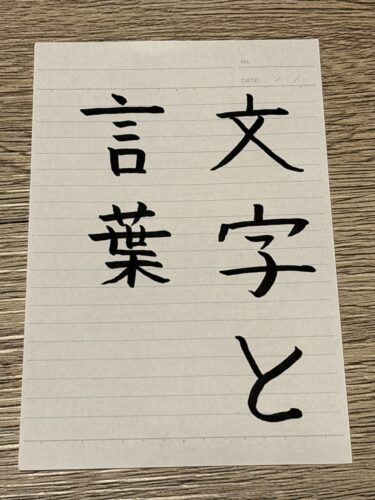 文字と
言葉
No.
DATE: / /